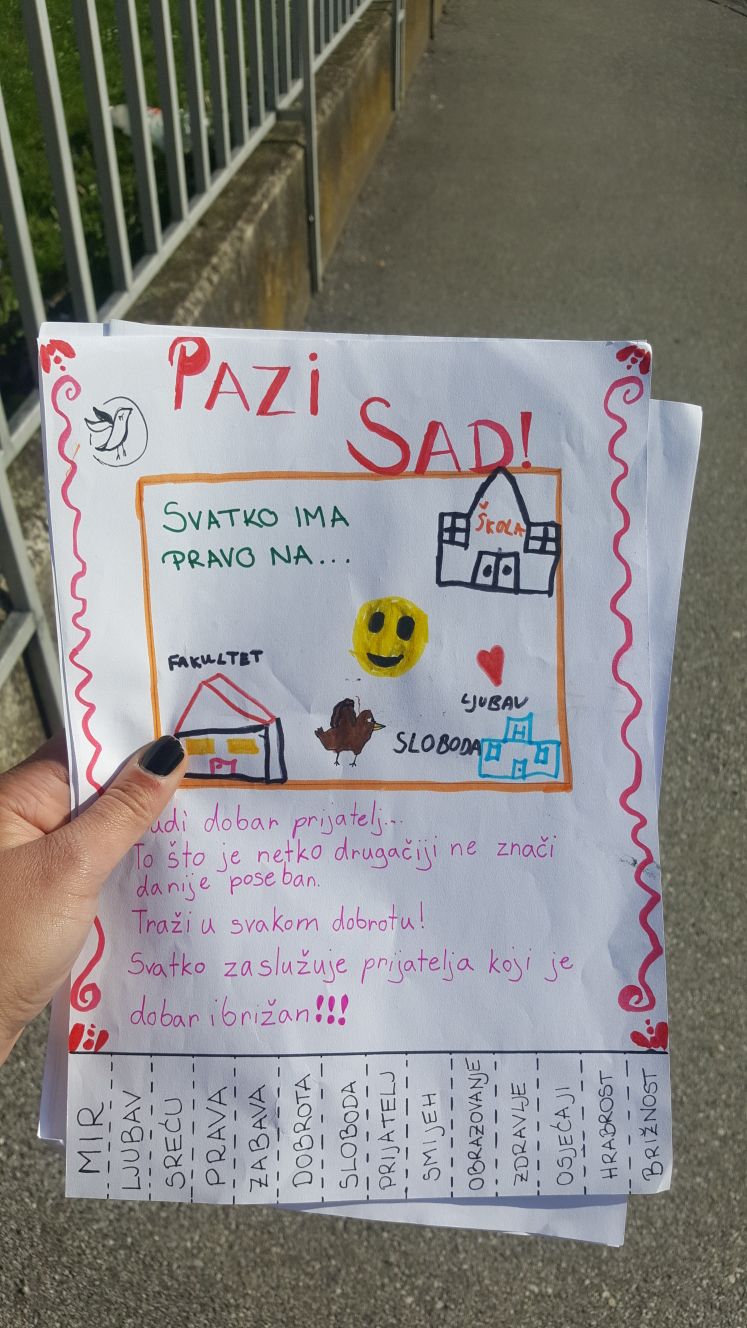 PAZI
SAD!
SVATKO IMA
PRAVO NA...
ŠKOLA
FAKULTET
LJUBAV
SLOBODA
udi dobar prijatelj...
To što je netko drugačiji ne znači
danije poseban.
Traži u svakom dobrotu!
Svatko zaslužuje prijatelja koji je
dobar i brižan!!!
MIR
LJUBAV
SREĆU
PRAVA
ZABAVA
DOBROTA
SLOBODA
PRIJATELJ
SMIJEH
OBRAZOVANJE
ZDRAVLJE
OSJEĆAJI
HRABROST
BRIŽNOST